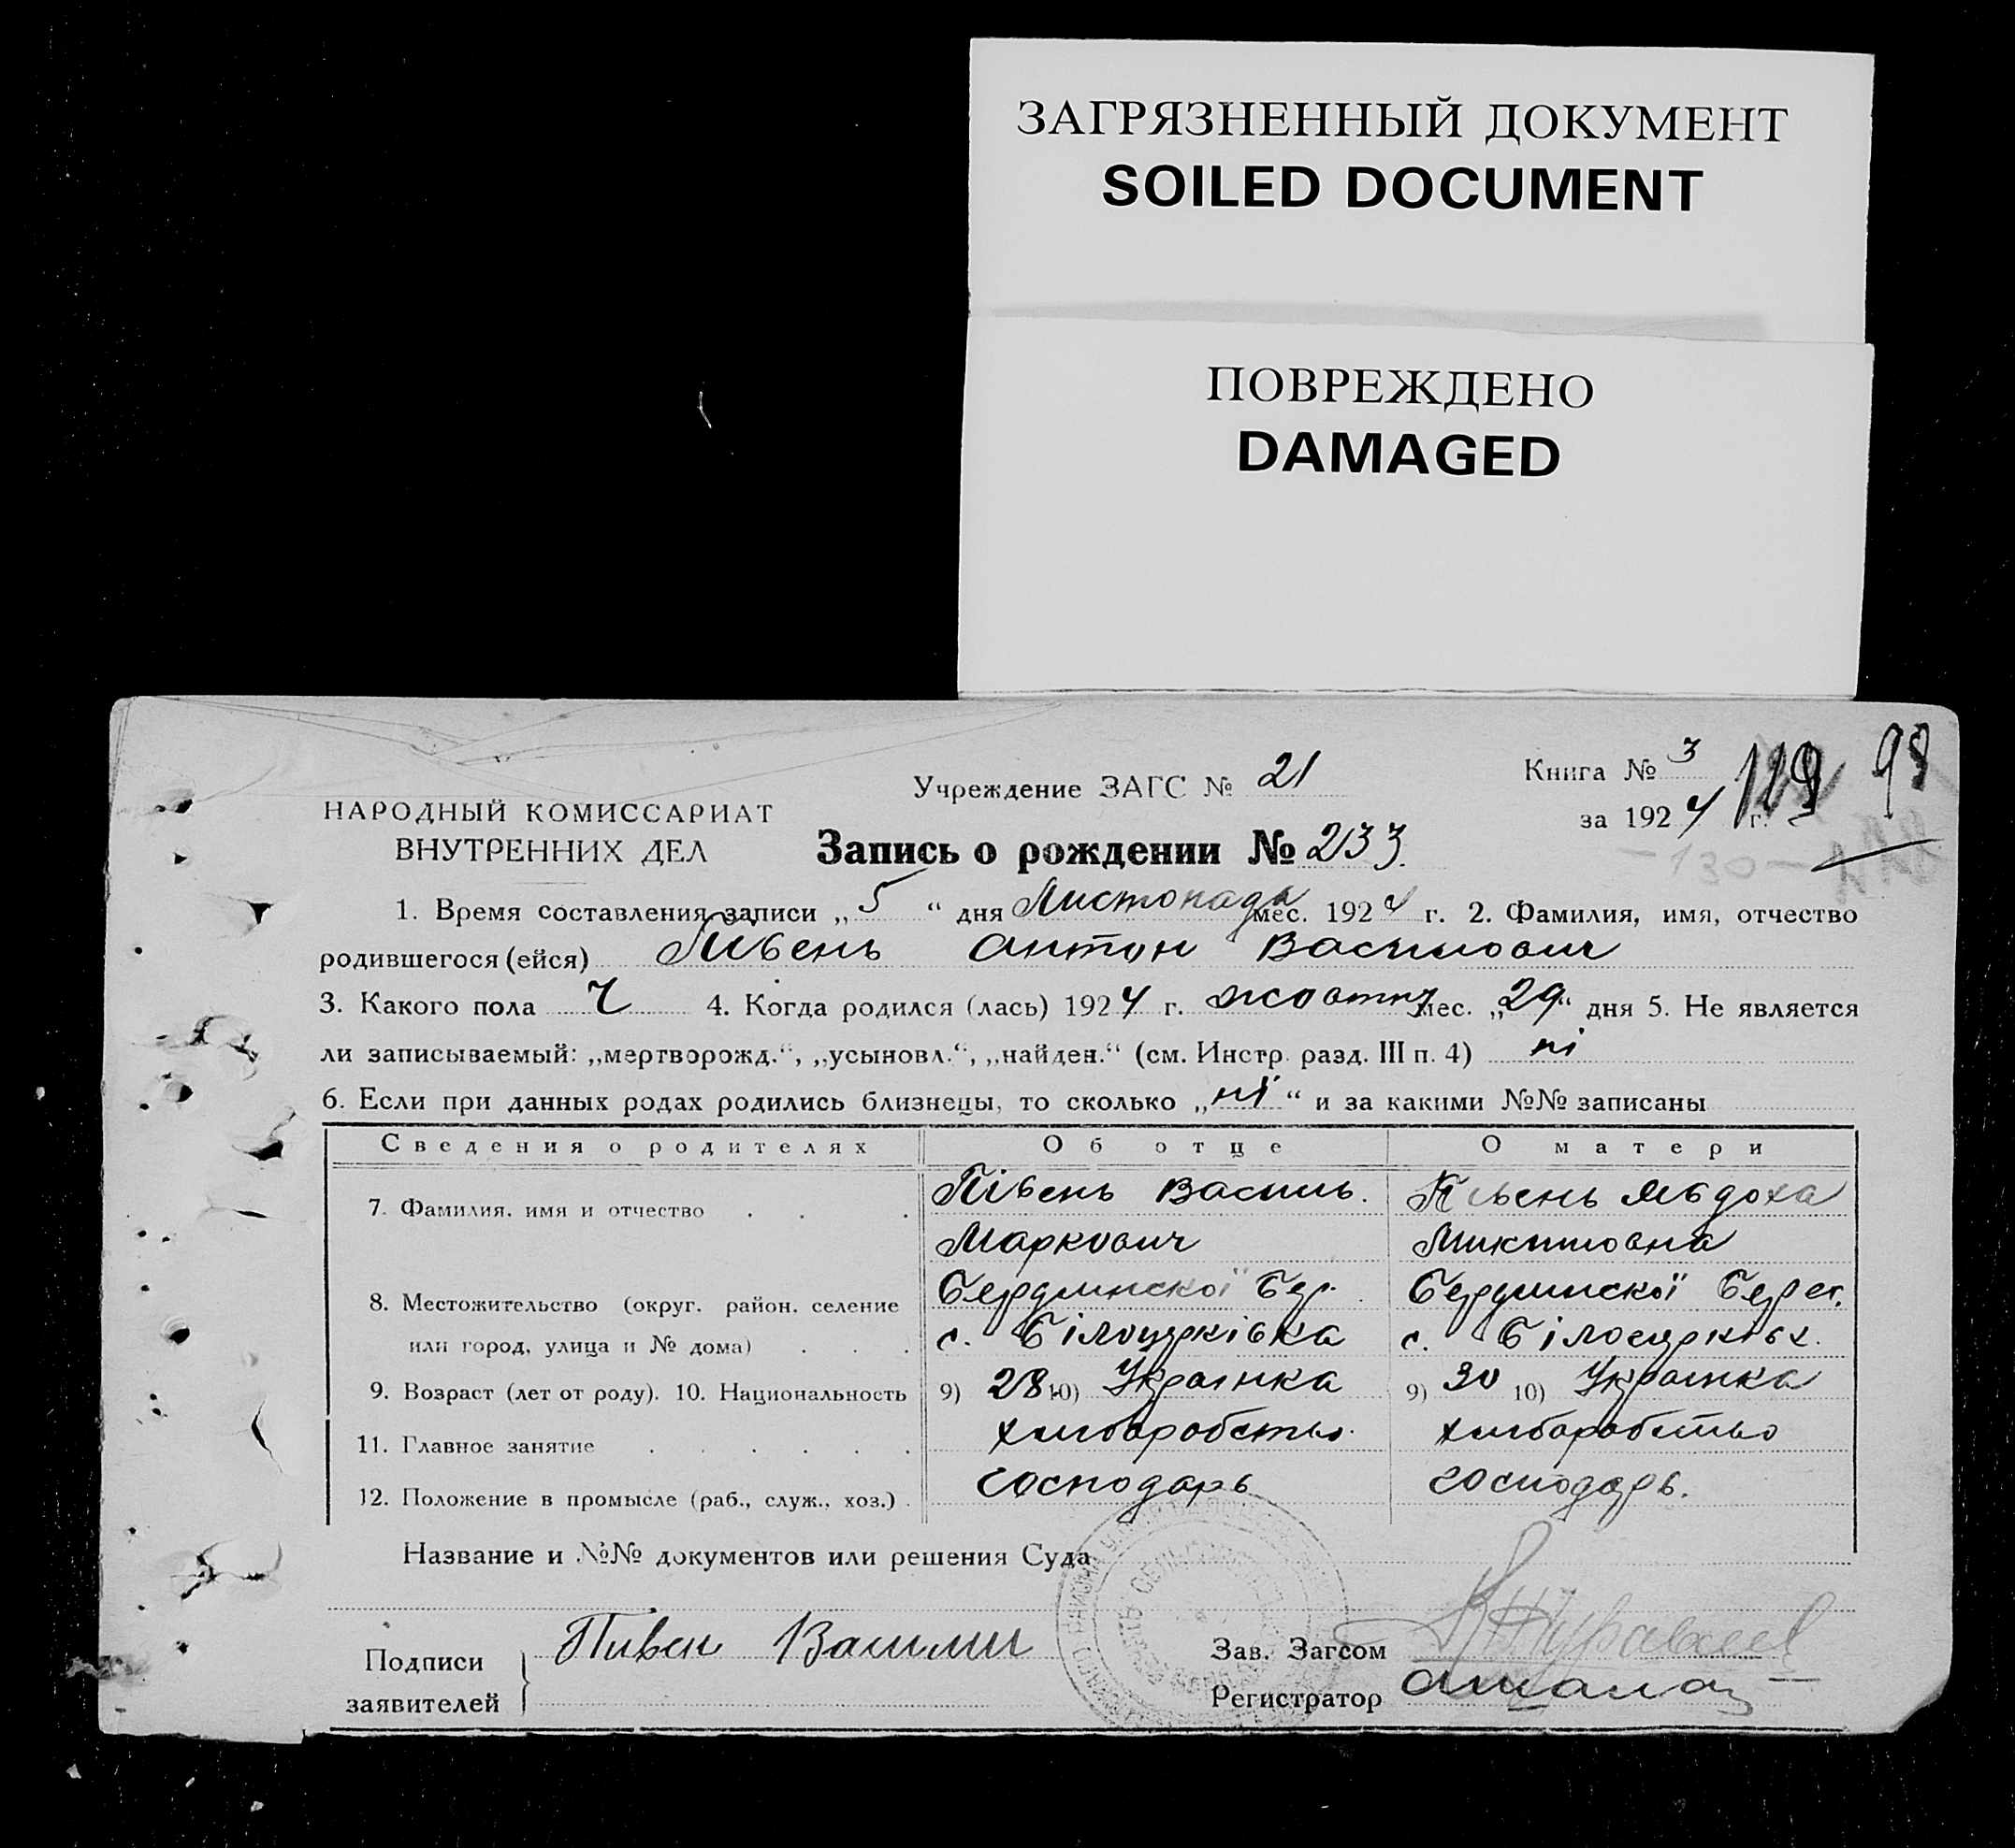 ЗАГРЯЗНЕННЫЙ ДОКУМЕНТ
SOILED DOCUMENT
ПОВРЕЖДЕНО
DAMAGED
Учреждение ЗАГС № 21
Книга № 3 98
за 1924 г.
НАРОДНЫЙ КОМИССАРИАТ
ВНУТРЕННИХ ДЕЛ
Запись о рождении № 233.
- 130 -
1. Время составления записи „5“ дня Листопада мес. 1924 г. 2. Фамилия, имя, отчество
родившегося (ейся) Півень Антон Васильович
3. Какого пола Ч 4. Когда родился (лась) 1924 г. жовтня мес. „29“ дня 5. Не является
ли записываемый: „мертворожд.“, „усыновл.“, „найден.“ (см. Инстр. разд. III п. 4) ні
6. Если при данных родах родились близнецы, то сколько „ні“ и за какими №№ записаны
Сведения о родителях Об отце О матери
7. Фамилия, имя и отчество Півень Василь. Півень Явдоха
Маркович Микитовна
8. Местожительство (округ. район. селение
или город, улица и № дома) с. Білоцрківка с.
9. Возраст (лет от роду). 10. Национальность 9) 28 10) Украінка 9) 30 10) Украінка
11. Главное занятие хліборобство. хліборобство
12. Положение в промысле (раб., служ., хоз.) господарь господарь.
Название и №№ документов или решения Суда
Подписи
заявителей
Пивен Васили
Зав. Загсом
Регистратор